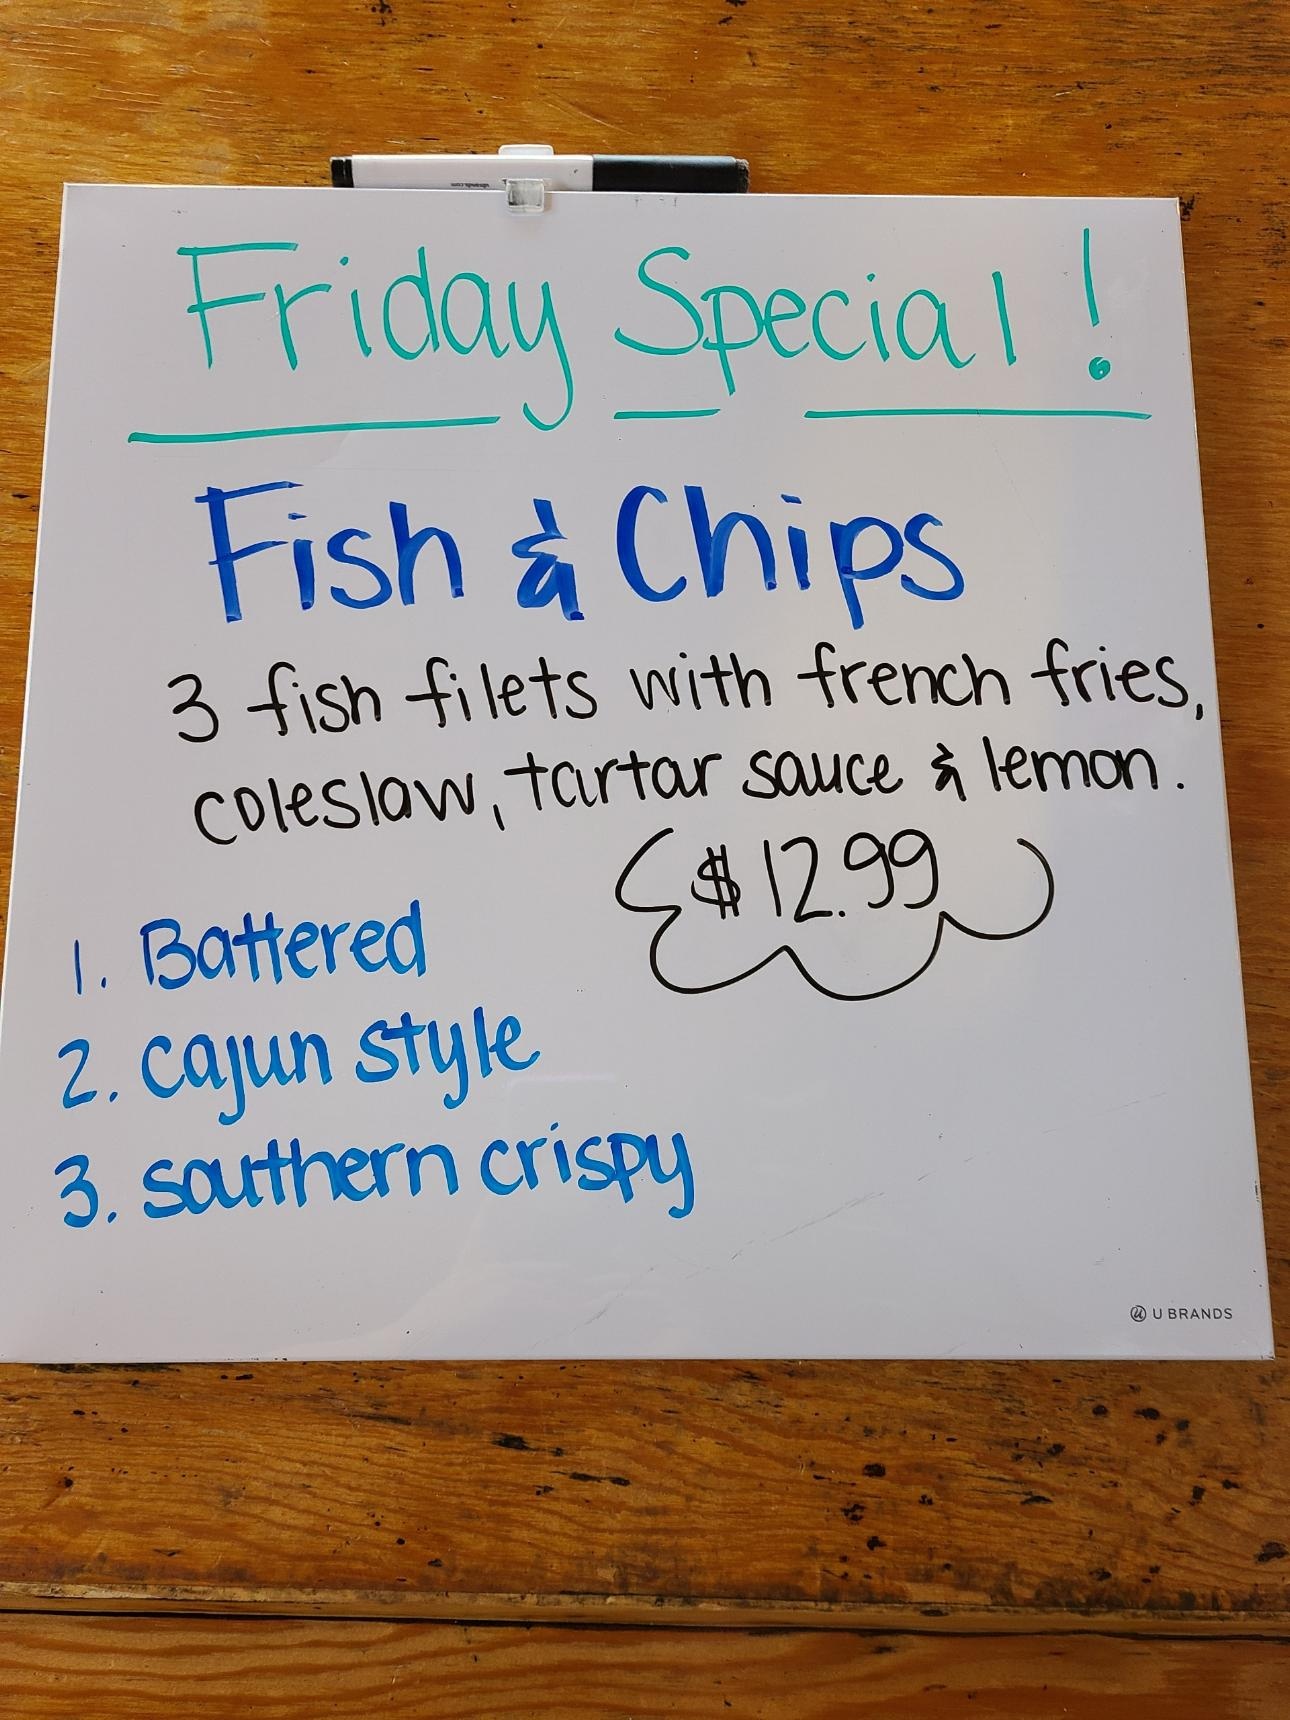 Friday Special!
Fish & Chips
3 fish filets with french fries,
coleslaw, tartar sauce & lemon.
$12.99
1. Battered
2. Cajun style
3. southern crispy
U BRANDS